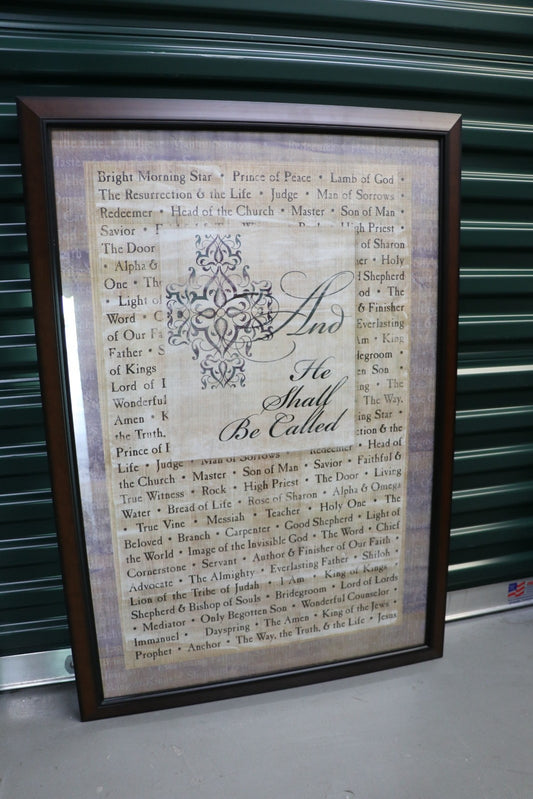 Bright Morning Star • Prince of Peace • Lamb of God •
The Resurrection & the Life • Judge • Man of Sorrows
Redeemer • Head of the Church • Master • Son of Man
Savior • High Priest •
The Door of Sharon
• Alpha & • Holy
One • Shepherd
• Light of • The
Word • & Finisher
of Our Everlasting
Father • Am • King
of Kings degroom •
Lord of en Son •
Wonderful • The
Amen • The Way,
the Truth, ing Star •
Prince of ction & the
And
He
Shall
Be Called
Life • Judge • Man of Sorrows Redeemer • Head of
the Church • Master • Son of Man • Savior • Faithful &
True Witness • Rock • High Priest • The Door • Living
Water • Bread of Life • Rose of Sharon • Alpha & Omega
• True Vine • Messiah • Teacher • Holy One • The
Beloved • Branch • Carpenter • Good Shepherd • Light of
the World • Image of the Invisible God • The Word • Chief
Cornerstone • Servant • Author & Finisher of Our Faith
Advocate • The Almighty • Everlasting Father • Shiloh •
Lion of the Tribe of Judah • I Am • King of Kings
Shepherd & Bishop of Souls • Bridegroom • Lord of Lords
• Mediator • Only Begotten Son • Wonderful Counselor •
Immanuel • Dayspring • The Amen • King of the Jews •
Prophet • Anchor • The Way, the Truth, & the Life • Jesus